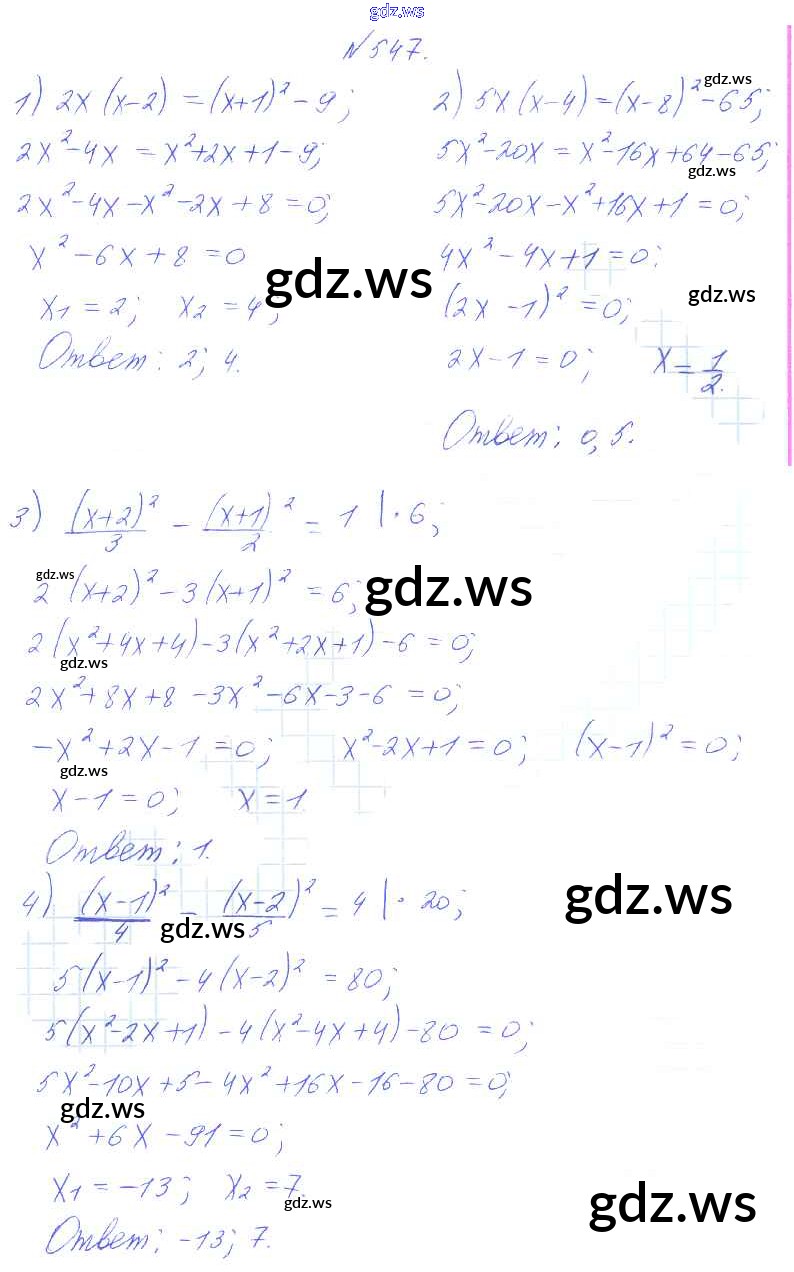 gdz.ws
№547.
1) 2x (x-2) = (x+1)² - 9;
2x² - 4x = x² + 2x + 1 - 9;
2x² - 4x - x² - 2x + 8 = 0;
x² - 6x + 8 = 0
x₁ = 2; x₂ = 4;
Ответ: 2; 4.
gdz.ws
2) 5x (x-4) = (x-8)² - 65;
gdz.ws
5x² - 20x = x² - 16x + 64 - 65;
gdz.ws
5x² - 20x - x² + 16x + 1 = 0;
4x² - 4x + 1 = 0;
(2x - 1)² = 0;
gdz.ws
2x - 1 = 0; x = 1/2.
Ответ: 0,5.
3) (x+2)²/3 - (x+1)²/2 = 1 | · 6;
gdz.ws
2 (x+2)² - 3 (x+1)² = 6;
gdz.ws
2 (x² + 4x + 4) - 3 (x² + 2x + 1) - 6 = 0;
gdz.ws
2x² + 8x + 8 - 3x² - 6x - 3 - 6 = 0;
-x² + 2x - 1 = 0; x² - 2x + 1 = 0; (x-1)² = 0;
gdz.ws
x - 1 = 0; x = 1.
Ответ: 1.
gdz.ws
4) (x-1)²/4 - (x-2)²/5 = 4 | · 20;
gdz.ws
5 (x-1)² - 4 (x-2)² = 80;
5 (x² - 2x + 1) - 4 (x² - 4x + 4) - 80 = 0;
5x² - 10x + 5 - 4x² + 16x - 16 - 80 = 0;
gdz.ws
x² + 6x - 91 = 0;
x₁ = -13; x₂ = 7.
gdz.ws
gdz.ws
Ответ: -13; 7.